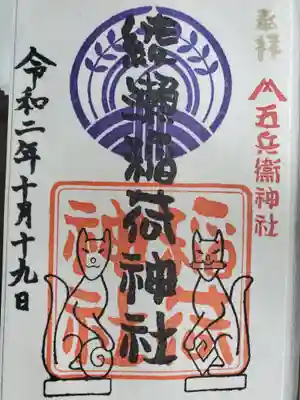 奉拝
五兵衛神社
綾瀬稲荷神社
令和二年十月十九日